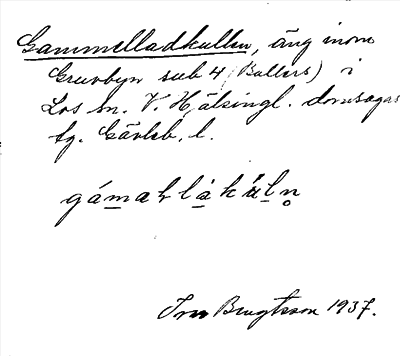 Gammelladkullen, äng inom
Gruvbyn sub 4 (Ballers) i
Los sn. V. Hälsingl. domsagas
tg. Gävleb. l.
gámaḷlákúln̥
Bengtsson 1937.